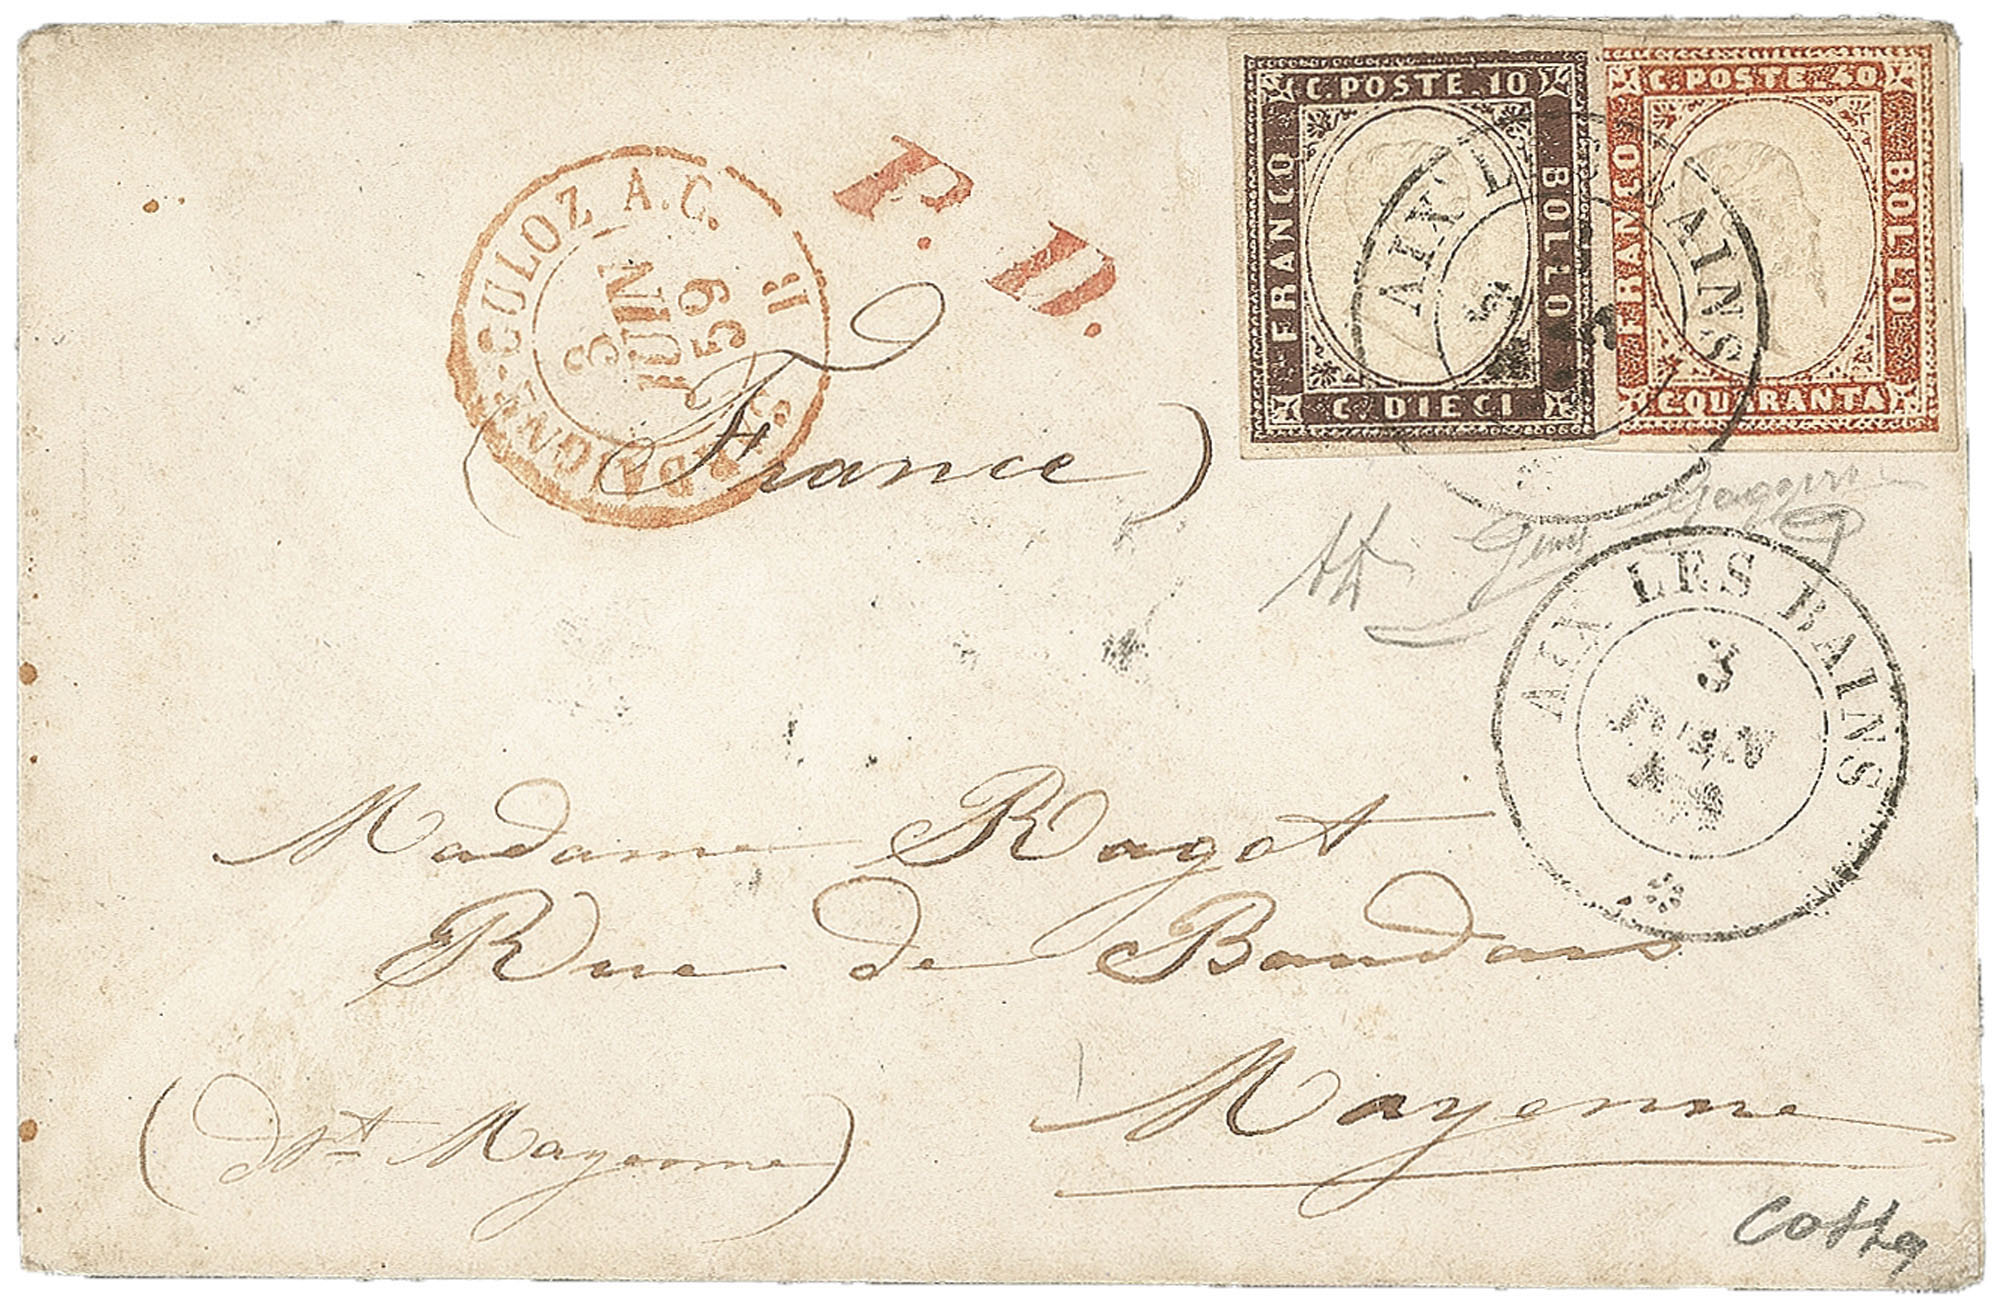 C. POSTE. 10
FRANCO
BOLLO
C. DIECI
C. POSTE. 40
FRANCO
BOLLO
C. QUARANTA
AIX LES BAINS
SARDAIGNE-CULOZ A.C.
3
JUIN
59
R
P. D.
(France)
AIX LES BAINS
3
Madame Ragot
Rue de Baudais
Mayenne
(dpt Mayenne)
Cotta